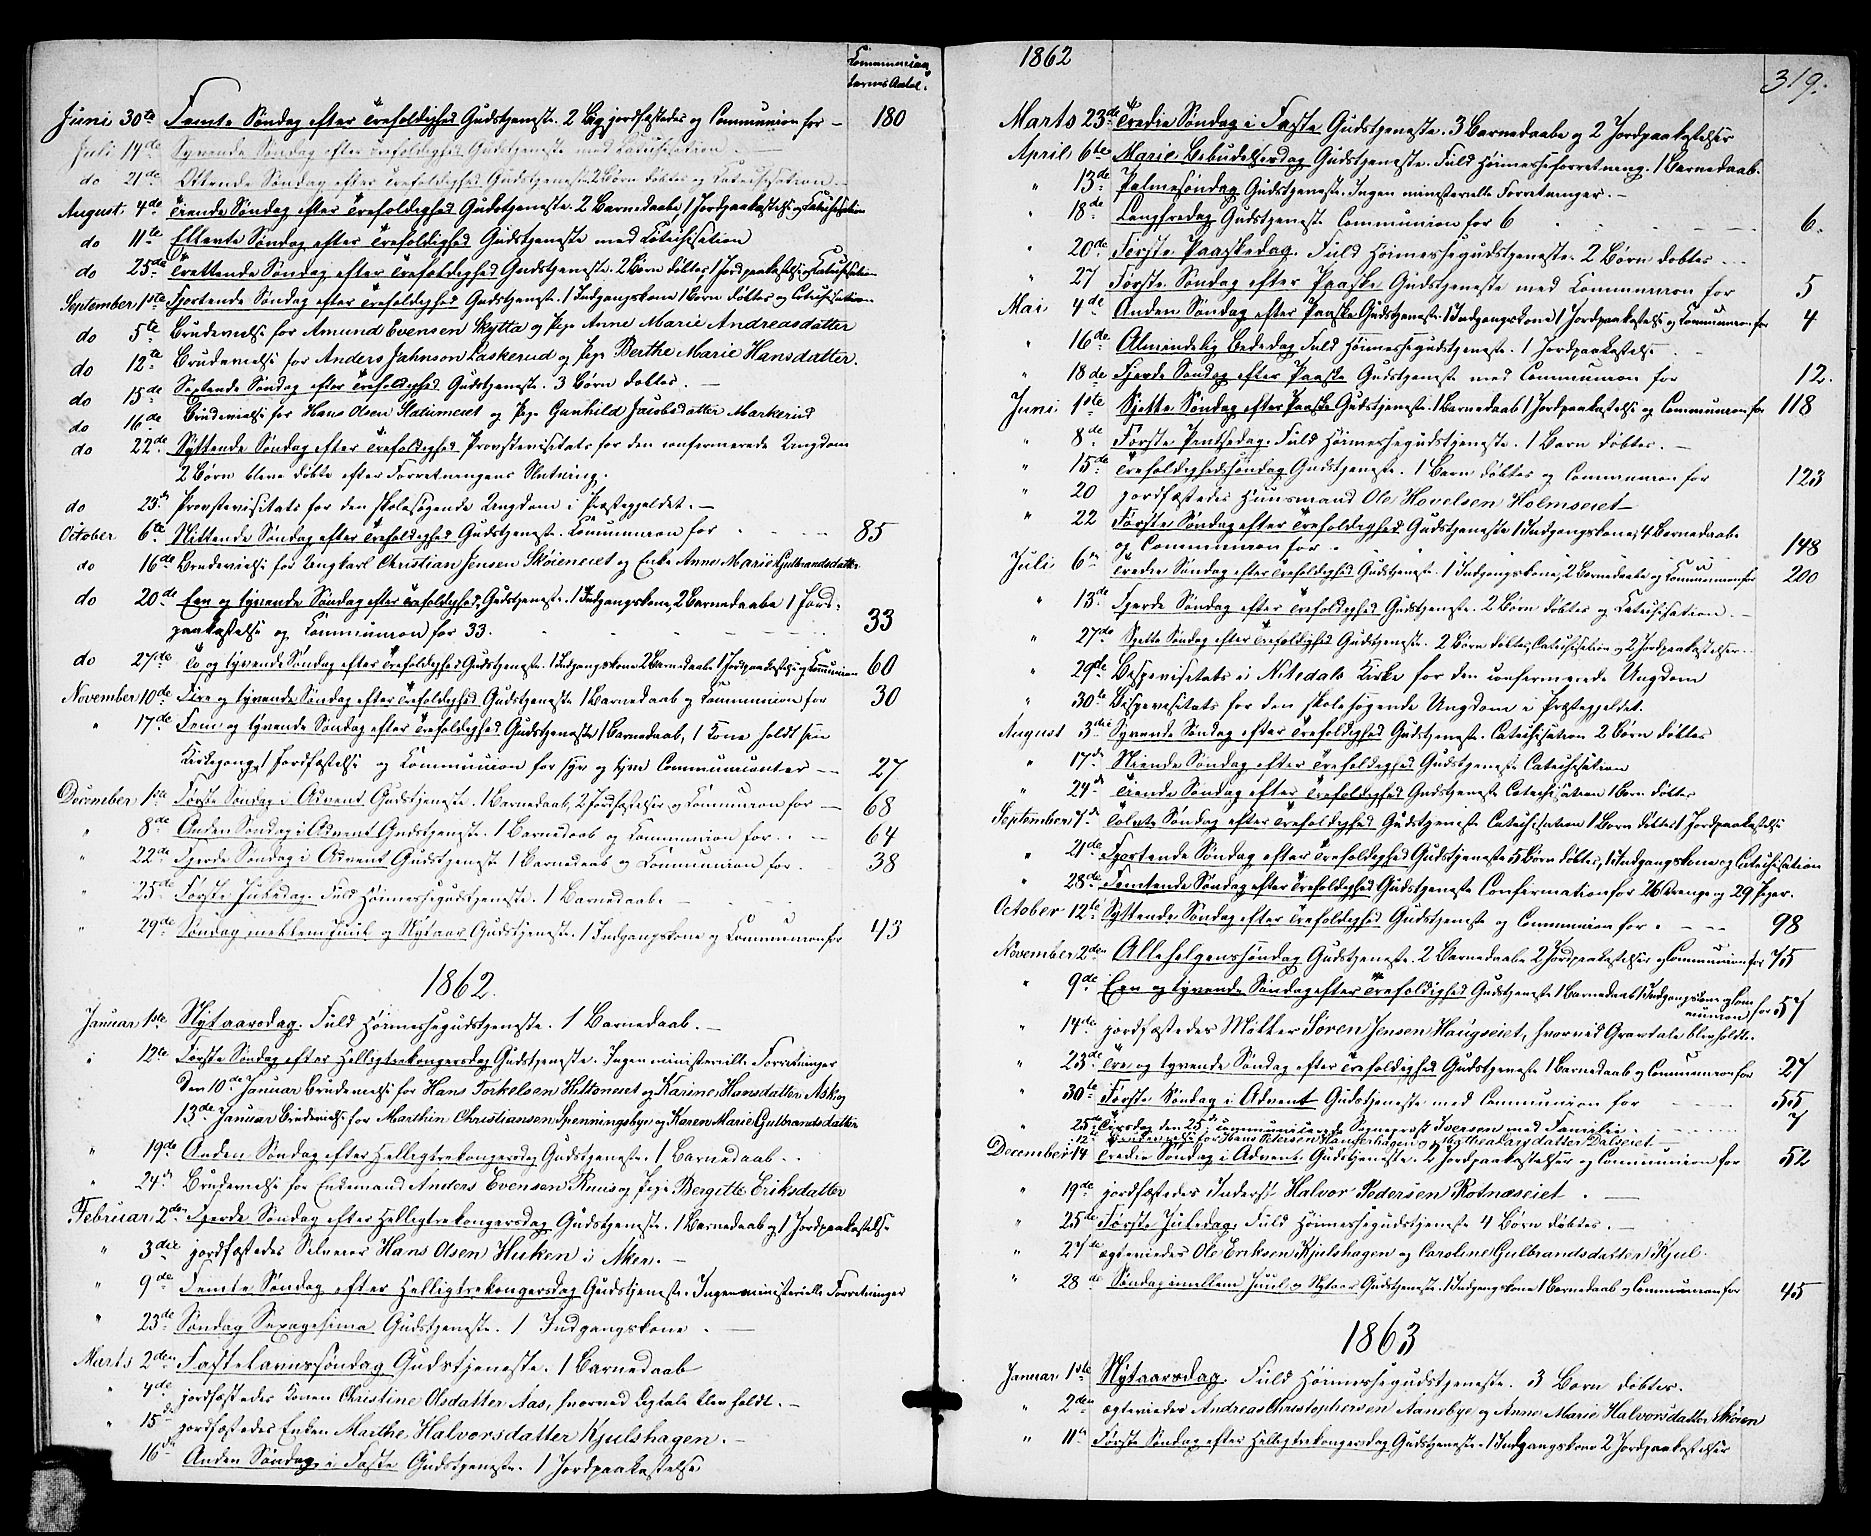 Communican-
ternes Antal.
Juni 30te Femte Søndag efter Trefoldighed Gudstjeneste. 2 Lig jordfæstedes og Communion for — 180
Juli 14de Syvende Søndag efter Trefoldighed Gudstjeneste med Catechisation —
do 21de Ottende Søndag efter Trefoldighed Gudstjeneste 2 Børn døbtes og Catechisation —
August 4de Tiende Søndag efter Trefoldighed Gudstjeneste. 2 Barnedaabe, 1 Jordpaakastelse og Catechisation
do 11te Ellevte Søndag efter Trefoldighed Gudstjeneste med Catechisation
do 25de Trettende Søndag efter Trefoldighed Gudstjeneste. 2 Børn døbtes 1 Jordpaakastelse og Catechisation
September 1ste Fjortende Søndag efter Trefoldighed Gudstjeneste. 1 Indgangskone 1 Barn døbtes og Catechisation
do 5te Brudevielse for Amund Evensen Skytta og Pige Anne Marie Andreasdatter
do 12te Brudevielse for Anders Jahnson Laskerud og Pige Berthe Marie Hansdatter.
do 15de Sextende Søndag efter Trefoldighed Gudstjeneste. 3 Børn døbtes. —
do 16de Brudevielse for Hans Olsen Slatumeiet og Pige Gunhild Jacobsdatter Markerud
do 22de Syttende Søndag efter Trefoldighed Provstevisitats for den confirmerede Ungdom
2 Børn bleve døbte efter Forretningens Slutning.
do 23de Provstevisitats for den skolesøgende Ungdom i Præstegjeldet. —
October 6te Nittende Søndag efter Trefoldighed Gudstjeneste. Communion for 85
do 16de Brudevielse for Ungkarl Christian Jensen Skøieneiet og Enke Anne Marie Gulbrandsdatter
do 20de Een og tyvende Søndag efter Trefoldighed, Gudstjeneste. 1 Indgangskone, 2 Barnedaabe 1 Jord-
paakastelse og Communion for 33. 33
do 27de To og tyvende Søndag efter Trefoldighed Gudstjeneste. 1 Indgangskone 2 Barnedaabe 1 Jordpaakastelse og Communion 60
November 10de Fire og tyvende Søndag efter Trefoldighed Gudstjeneste 1 Barnedaab og Communion for 30
" 17de Fem og tyvende Søndag efter Trefoldighed Gudstjeneste 1 Barnedaab, 1 Kone holdt sin
Kirkegang, 1 Jordfæstelse og Communion for syv og tyve Communicanter — 27
December 1ste Første Søndag i Advent Gudstjeneste. 1 Barnedaab, 2 Jordfæstelser og Communion for — 68
" 8de Anden Søndag i Advent Gudstjeneste. 1 Barnedaab og Communion for — 64
" 22de Fjerde Søndag i Advent Gudstjeneste 1 Barnedaab og Communion for. 38
" 25de Første Juledag. Fuld Høimessegudstjeneste. 1 Barnedaab
" 29de Søndag mellem Juul og Nytaar Gudstjeneste. 1 Indgangskone og Communion for 43
1862.
Januar 1ste Nytaarsdag. Fuld Høimessegudstjeneste. 1 Barnedaab. —
12te Første Søndag efter Helligtrekongersdag Gudstjeneste. Ingen ministerielle Forretninger
Den 10de Januar Brudevielse for Hans Torkelsen Hittoneiet og Karine Hansdatter Askeg
13de Januar Brudevielse for Marthin Christiansen Spenningsbye og Karen Marie Gulbrandsdatter
" 19de Anden Søndag efter Helligtrekongersdag Gudstjeneste. 1 Barnedaab. .
" 24de Brudevielse for Enkemand Anders Evensen Ruus og Pige Bergitte Eriksdatter
Februar 2den Fjerde Søndag efter Helligtrekongersdag Gudstjeneste. 1 Barnedaab og 1 Jordpaakastelse
" 3die jordfæstedes Selveier Hans Olsen Huken i Aken. —
" 9de Femte Søndag efter Helligtrekongersdag Gudstjeneste. Ingen ministerielle Forretninger
" 23de Søndag Sexagesima Gudstjeneste. 1 Indgangskone . —
Marts 2den Fastelavnssøndag Gudstjeneste. 1 Barnedaab
" 4de jordfæstedes Konen Christine Olsdatter Aas, hvorved Ligtale blev holdt. —
" 15de jordfæstedes Enken Marthe Halvorsdatter Kjulshagen. —
16de Anden Søndag i Faste Gudstjeneste. 1 Jordpaakastelse
1862
319.
Marts 23de Tredie Søndag i Faste Gudstjeneste. 3 Barnedaabe og 2 Jordpaakastelser
April 6te Mariæ Bebudelsesdag Gudstjeneste. Fuld Høimesseforretning. 1 Barnedaab.
" 13de Palmesøndag Gudstjeneste. Ingen ministerielle Forretninger. —
" 18de Langfredag Gudstjeneste Communion for 6 6.
" 20de Første Paaskedag. Fuld Høimessegudstjeneste. 2 Børn døbtes
" 27 Første Søndag efter Paaske Gudstjeneste med Communion for 5
Mai 4de Anden Søndag efter Paaske Gudstjeneste 1 Indgangskone 1 Jordpaakastelse og Communion for 4
" 16de Almindelig Bededag Fuld Høimessegudstjeneste. 1 Jordpaakastelse
" 18de Fjerde Søndag efter Paaske Gudstjeneste med Communion for 12.
Juni 1ste Sjette Søndag efter Paaske Gudstjeneste. 1 Barnedaab 1 Jordpaakastelse og Communion for 118
" 8de Første Pintsedag. Fuld Høimessegudstjeneste. 1 Barn døbtes. —
" 15de Trefoldighedssøndag Gudstjeneste. 1 Barn døbtes og Communion for 123
" 20 jordfæstedes Huusmand Ole Hovelsen Holmseiet —
" 22 Første Søndag efter Trefoldighed Gudstjeneste 1 Indgangskone, 4 Barnedaabe
og Communion for . 148
Juli 6te Tredie Søndag efter Trefoldighed Gudstjeneste. 1 Indgangskone, 2 Barnedaabe og Communion for 200
" 13de Fjerde Søndag efter Trefoldighed Gudstjeneste. 2 Børn døbtes og Catechisation. —
" 27de Sjette Søndag efter Trefoldighed Gudstjeneste. 2 Børn døbtes, Catechisation og 2 Jordpaakastelser.
" 29de Bispevisitats i Nitedals Kirke for den confirmerede Ungdom
" 30te Bispevisitats for den skolesøgende Ungdom i Præstegjeldet.
August 3die Syvende Søndag efter Trefoldighed Gudstjeneste. Catechisation 2 Børn døbtes
" 17de Niende Søndag efter Trefoldighed Gudstjeneste Catechisation
" 24de Tiende Søndag efter Trefoldighed Gudstjeneste Catechisation 1 Barn døbtes
September 7de Tolvte Søndag efter Trefoldighed Gudstjeneste Catechisation 1 Barn døbtes 1 Jordpaakastelse
" 21de Fjortende Søndag efter Trefoldighed Gudstjeneste 5 Børn døbtes, 1 Indgangskone og Catechisation
" 28de Femtende Søndag efter Trefoldighed Gudstjeneste Confirmation for 26 Drenge og 29 Piger.
October 12te Syttende Søndag efter Trefoldighed Gudstjeneste og Communion for . 98
November 2den Allehelgenssøndag Gudstjeneste. 2 Barnedaabe 2 Jordpaakastelser og Communion for 75
" 9de Een og tyvende Søndag efter Trefoldighed Gudstjeneste 1 Barnedaab 1 Indgangskone og Com
munion for 57
" 14de jordfæstedes Møller Søren Jensen Haugseiet, hvorved Gravtale blev holdt.
" 23de Tre og tyvende Søndag efter Trefoldighed Gudstjeneste 1 Barnedaab og Communion for 27
" 30te Første Søndag i Advent Gudstjeneste med Communion for 55
" 25de Tirsdag den 25de communicerede Sogneprest Iversen med Familie. 7
" 12te Brudevielse for Hans Petersen Hansehagen og Dalseiet —
December 14 Tredie Søndag i Advent. Gudstjeneste. 2 Jordpaakastelser og Communion for 52
" 19de jordfæstedes Inderst Halvor Pedersen Rotnæseiet . —
" 25de Første Juledag. Fuld Høimessegudstjeneste 4 Børn døbtes. —
" 27de ægteviedes Ole Eriksen Kjulshagen og Caroline Gulbrandsdatter Kjul.
" 28de Søndag imellem Juul og Nytaar Gudstjeneste. 1 Indgangskone 1 Barnedaab og Communion for 45
1863
Januar 1ste Nytaarsdag. Fuld Høimessegudstjeneste. 3 Børn døbtes.
" 2den ægteviedes Andreas Christophersen Aanebye og Anne Marie Halvorsdatter Skøien
" 11te Første Søndag efter Helligtrekongersdag Gudstjeneste. 1 Indgangskone 2 Jordpaakastelser